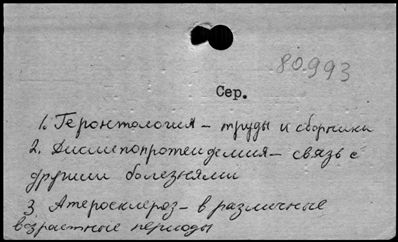 80.993
Сер.
1. Геронтология – труды и сборники
2. Дислипопротеидемия – связь с
другими болезнями
3. Атеросклероз – в различные
возрастные периоды